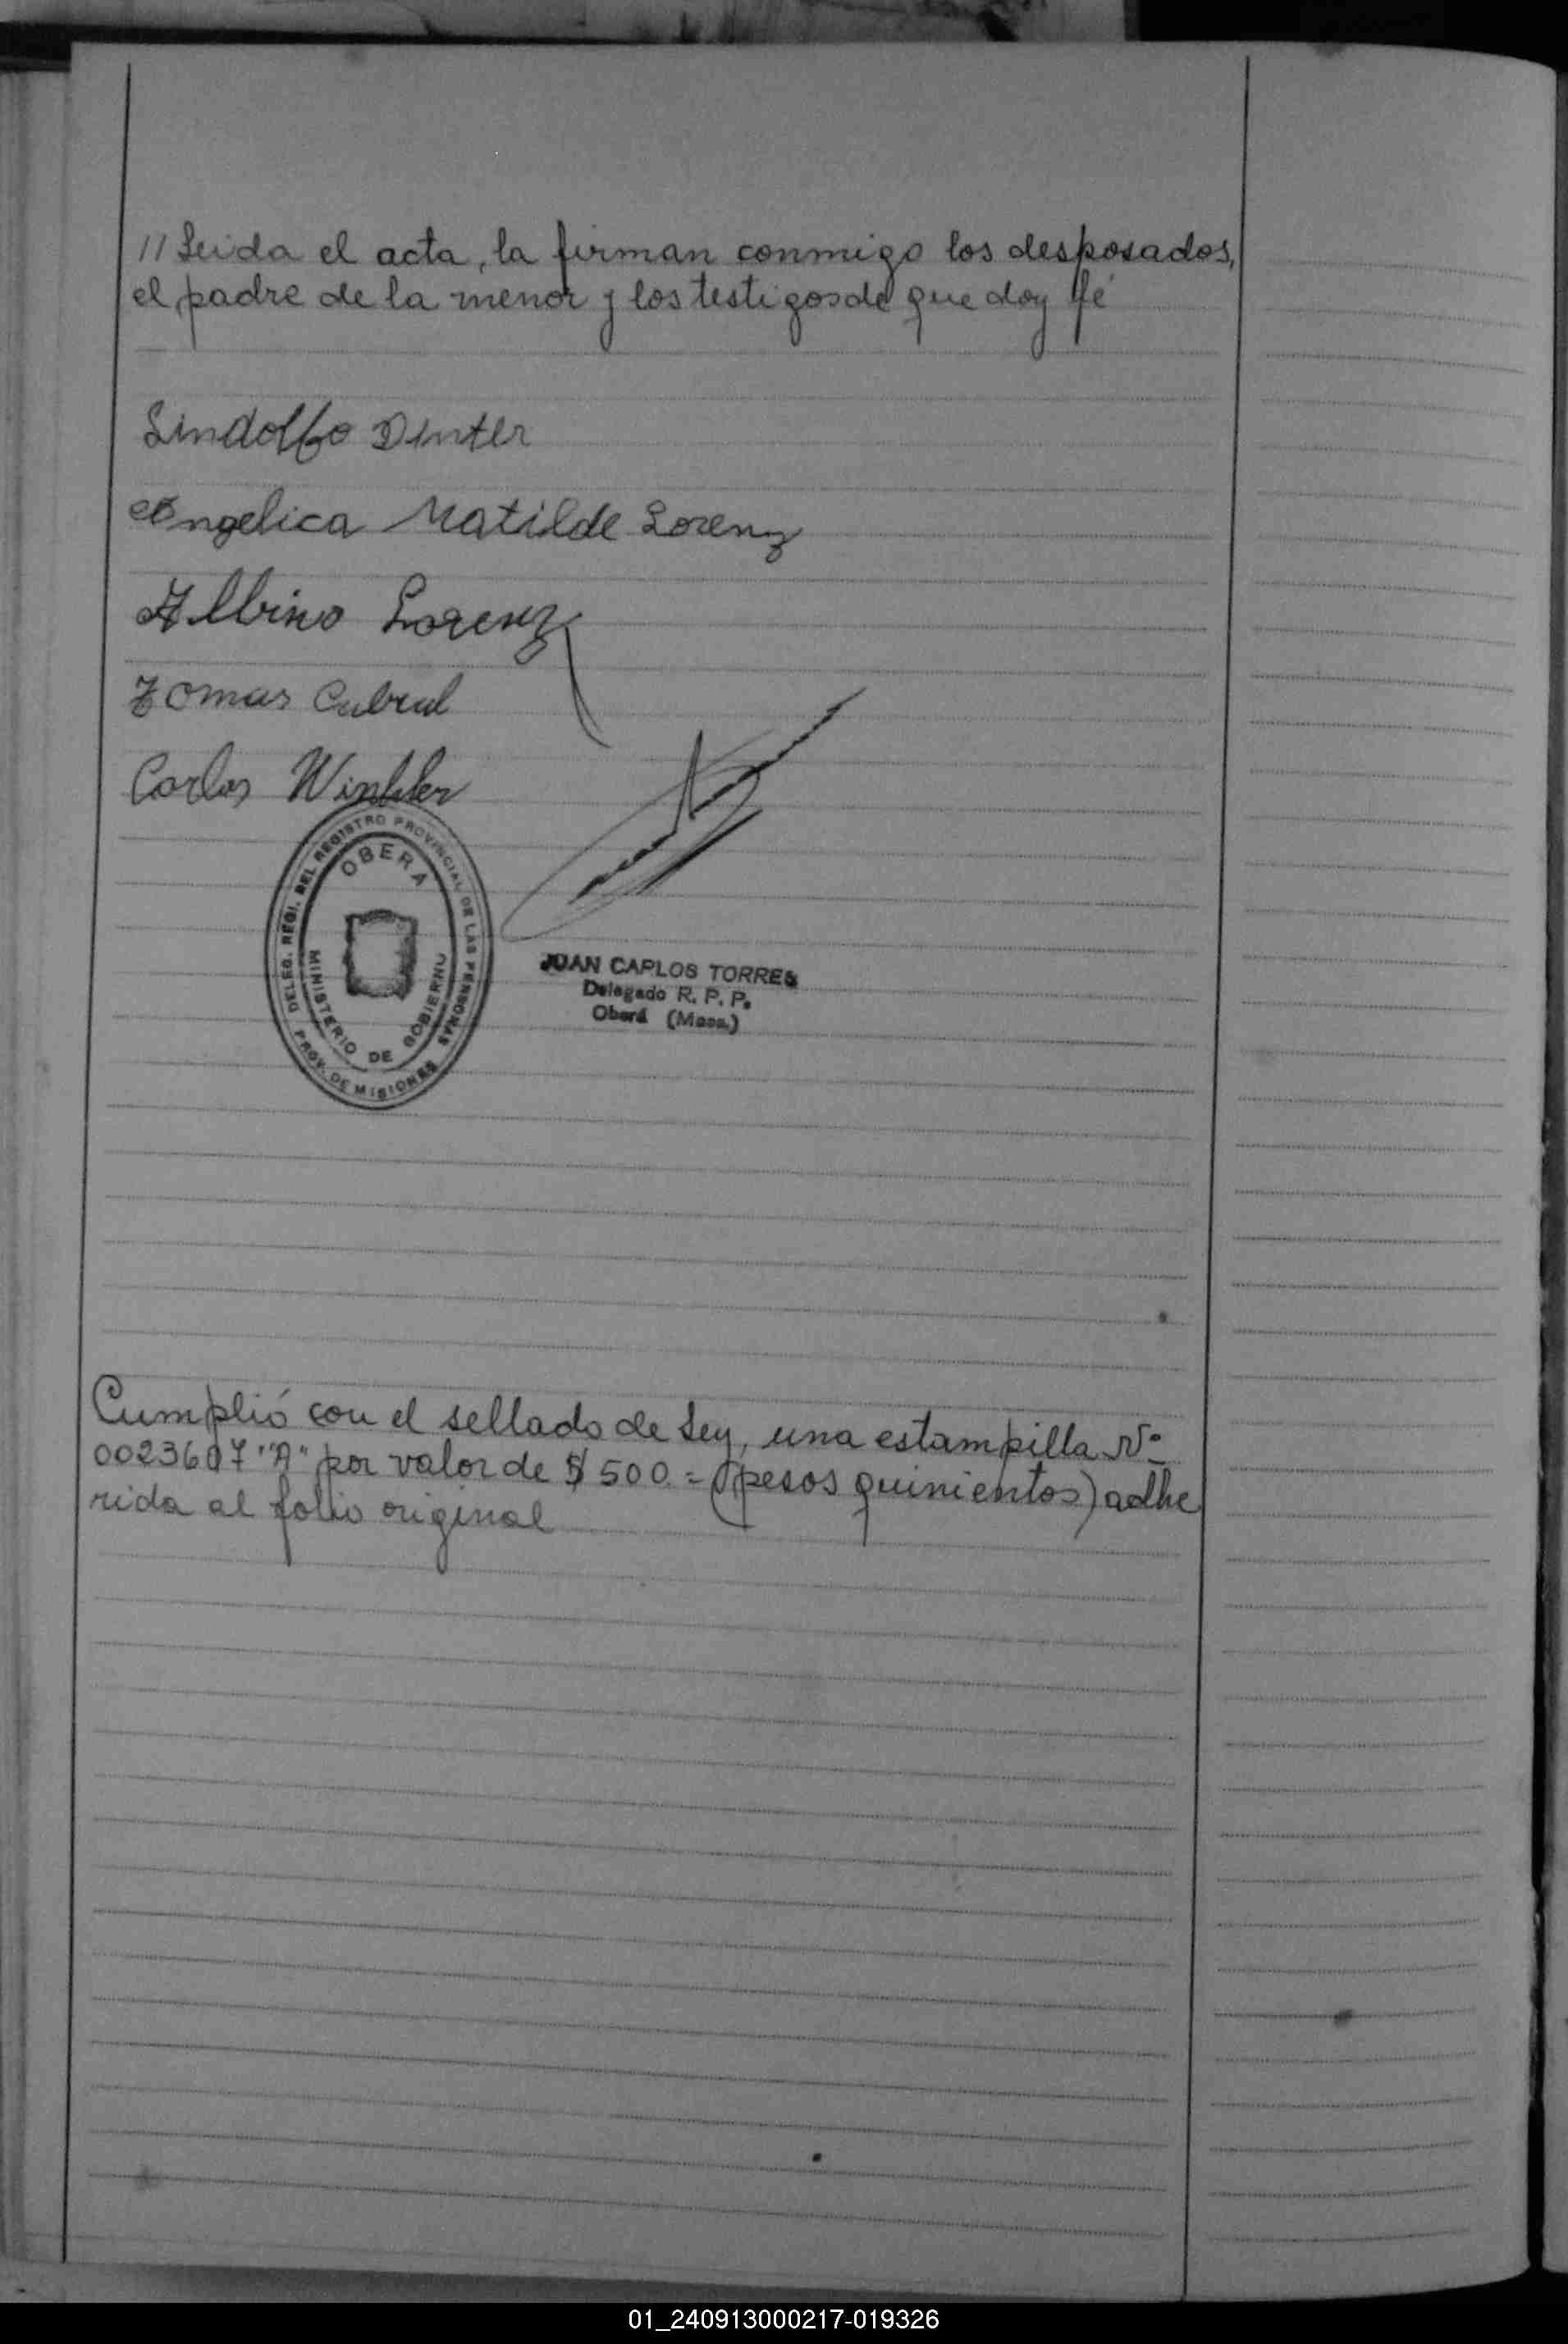 // Leida el acta, la firman conmigo los desposados,
el padre de la menor y los testigos de que doy fé
Lindolfo Dinter
Angelica Matilde Lorenz
Albino Lorenz
Tomas Cabral
Carlos Winkler
DELEG. REGI. REL REGISTRO PROVINCIAL DE LAS PERSONAS
OBERA
MINISTERIO DE GOBIERNO
PROV. DE MISIONES
JUAN CARLOS TORRES
Delegado R. P. P.
Oberá (Mnes.)
Cumplió con el sellado de Ley, una estampilla Nº
0023607 "A" por valor de $ 500.= (pesos quinientos) adhe
rida al folio original
01_240913000217-019326